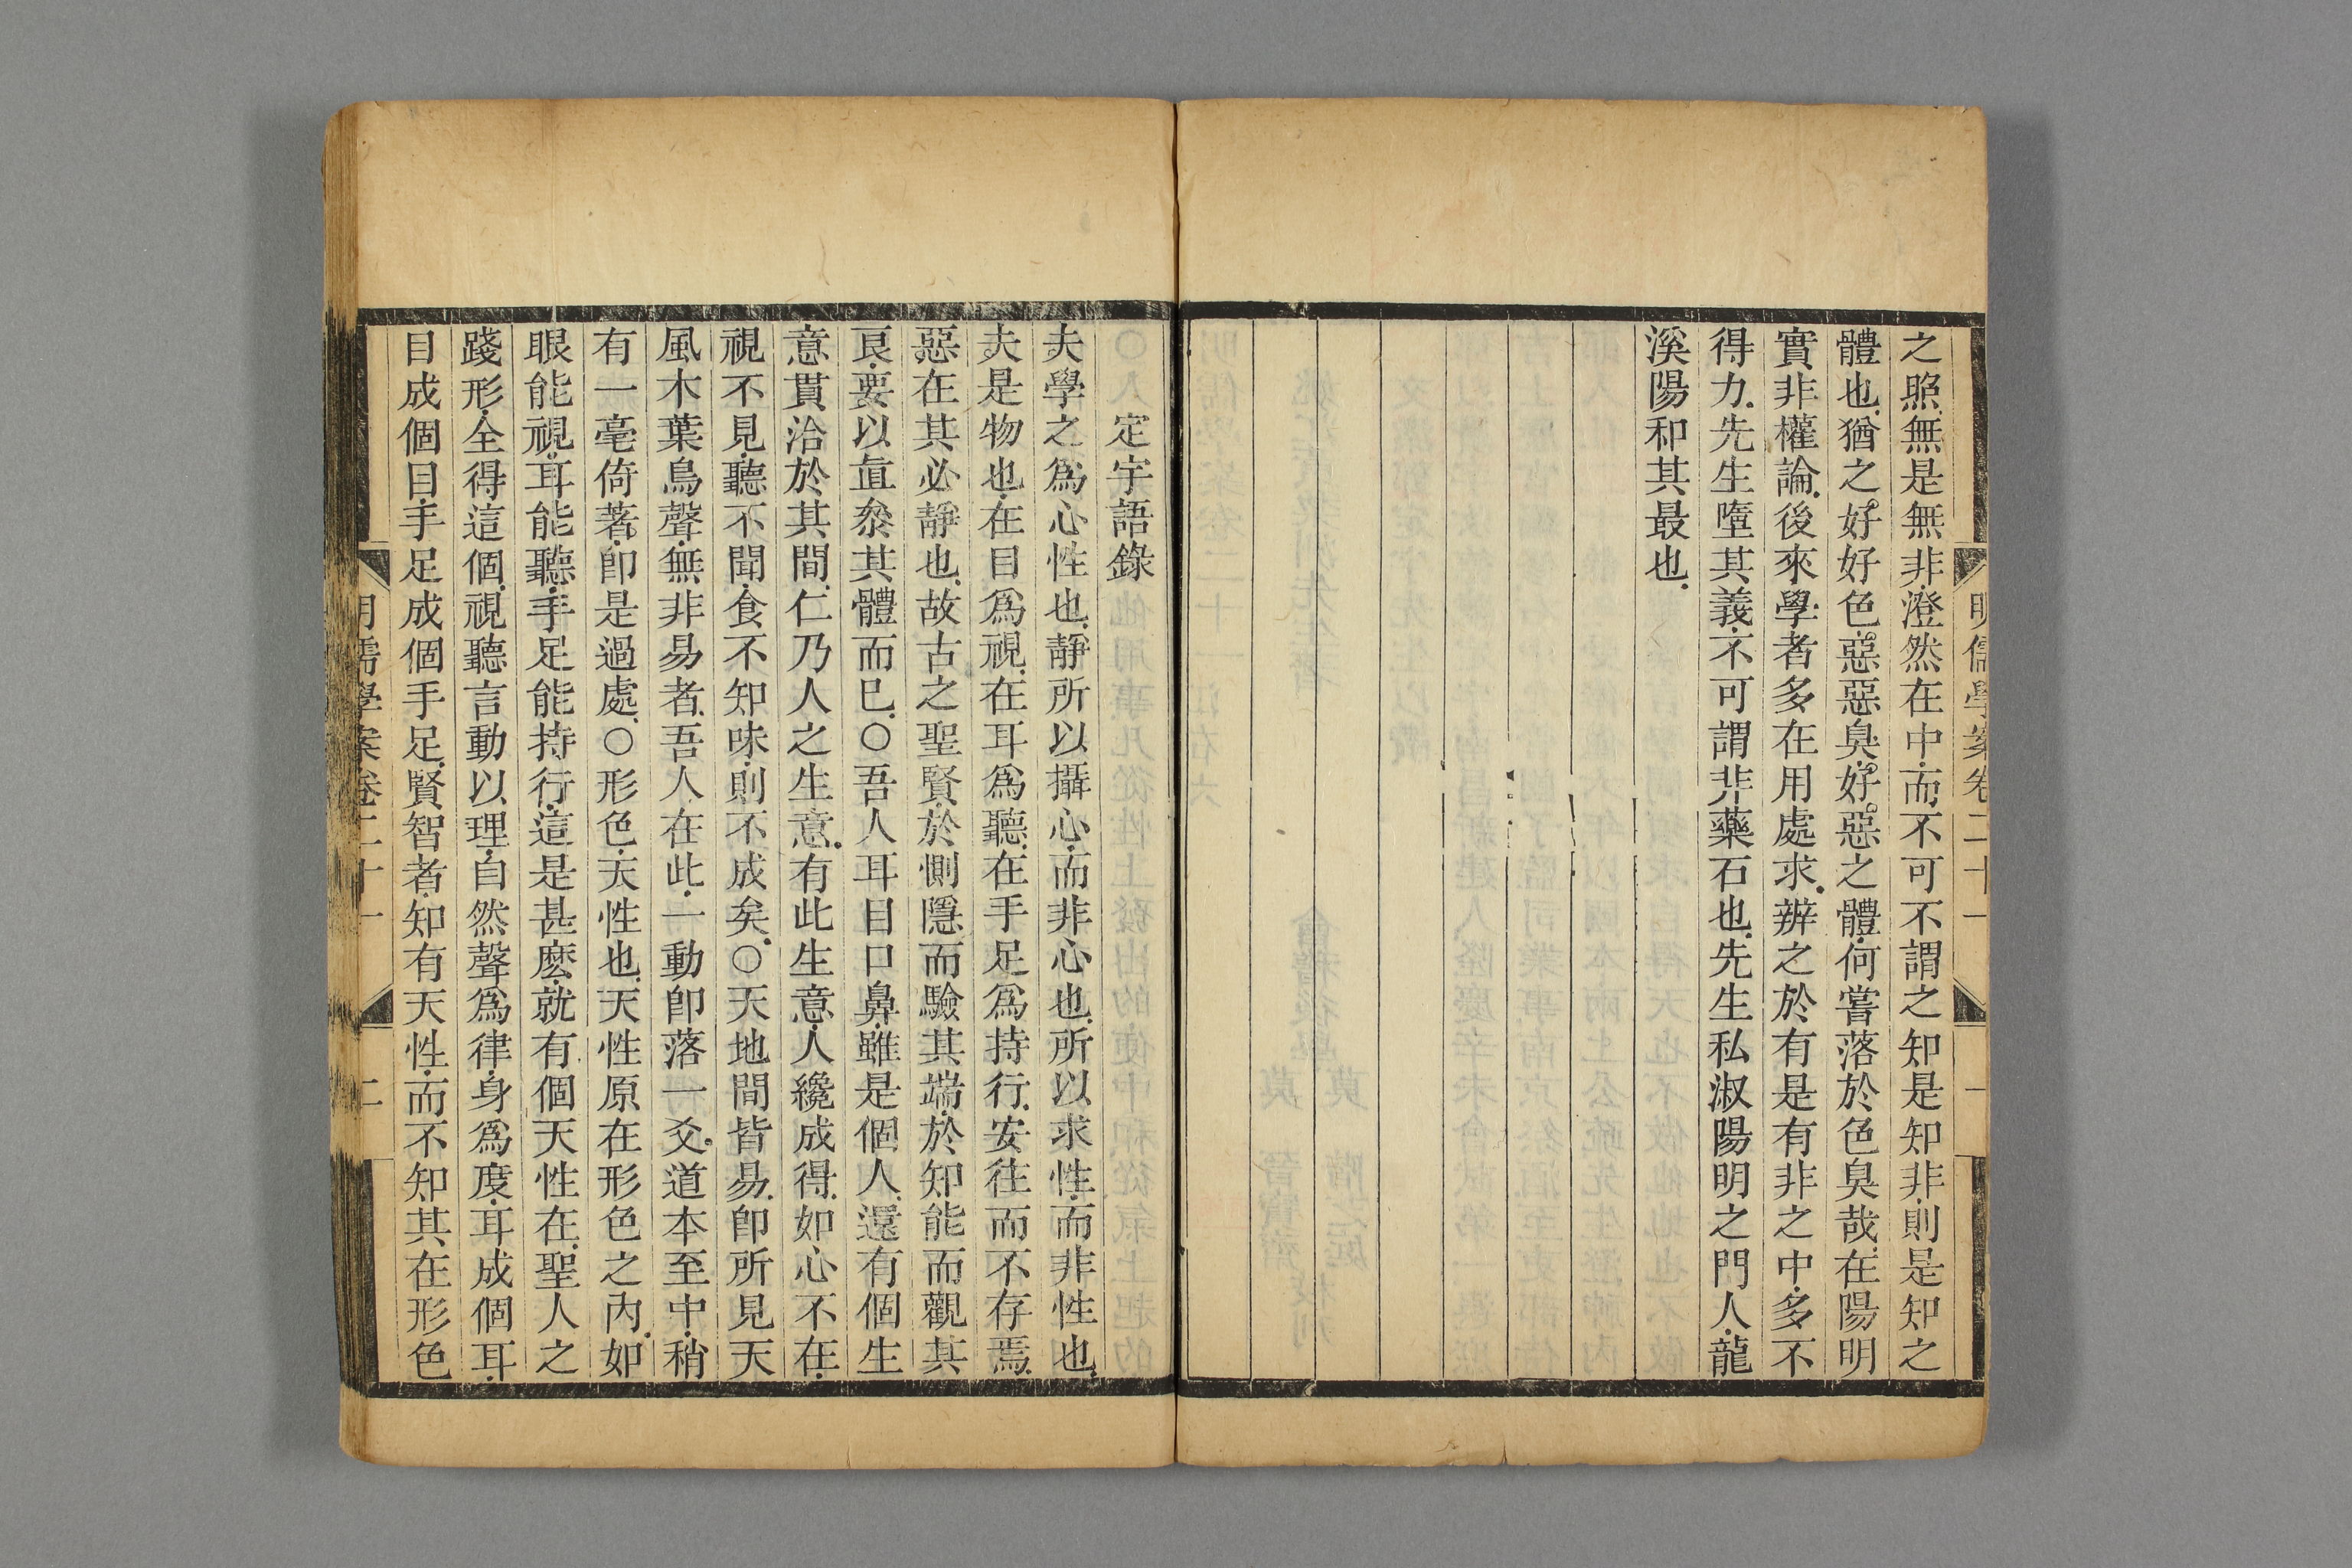 明儒學案卷二十一　一
之照無是無非澄然在中而不可不謂之知是知非則是知之
體也猶之好好色惡惡臭好惡之體何嘗落於色臭哉在陽明
實非權論後來學者多在用處求辨之於有是有非之中多不
得力先生墮其義不可謂非藥石也先生私淑陽明之門人龍
溪陽和其最也
定宇語錄
夫學之爲心性也靜所以攝心而非心也所以求性而非性也
夫是物也在目爲視在耳爲聽在手足爲持行安往而不存焉
惡在其必靜也故古之聖賢於惻隱而驗其端於知能而觀其
良要以直叅其體而已○吾人耳目口鼻雖是個人還有個生
意貫洽於其間仁乃人之生意有此生意人纔成得如心不在
視不見聽不聞食不知味則不成矣○天地間皆易卽所見天
風木葉鳥聲無非易者吾人在此一動卽落一爻道本至中稍
有一毫倚著卽是過處○形色天性也天性原在形色之內如
眼能視耳能聽手足能持行這是甚麽就有個天性在聖人之
踐形全得這個視聽言動以理自然聲爲律身爲度耳成個耳
目成個目手足成個手足賢智者知有天性而不知其在形色
明儒學案卷二十一　二